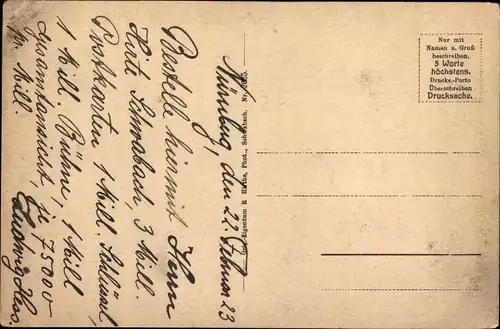 Nürnberg, den 22. Februar 23
Bestelle hiermit Herrn
Schwabach 3 Mill.
Postkarten 1 Mill. Schlüssel,
1 Mill. Bühne, 1 Mill
je 75000
pr. Mill.
Ludwig
Nur mit
Namen u. Gruß
beschreiben,
5 Worte
höchstens.
Drucks.-Porto
Überschreiben
Drucksache.
Eigentum R. Phot., Schwabach.